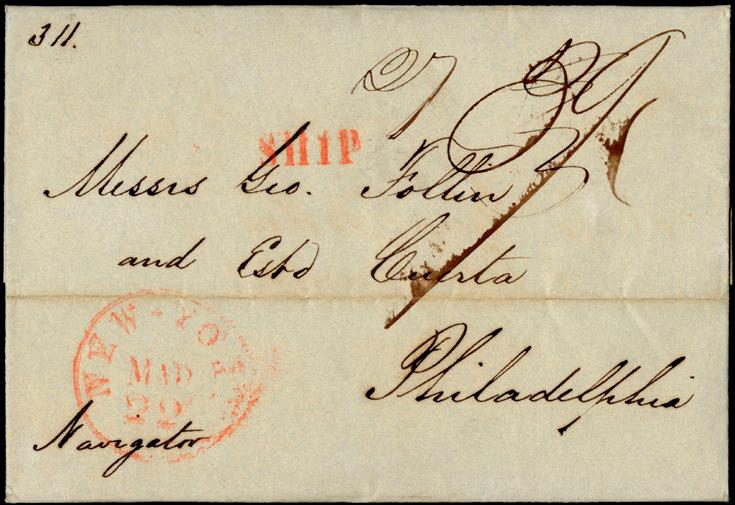 311.
27
SHIP
Messrs Geo. Follin
and Estd Cuesta
NEW-YORK
MAR
22
Philadelphia
Navigator